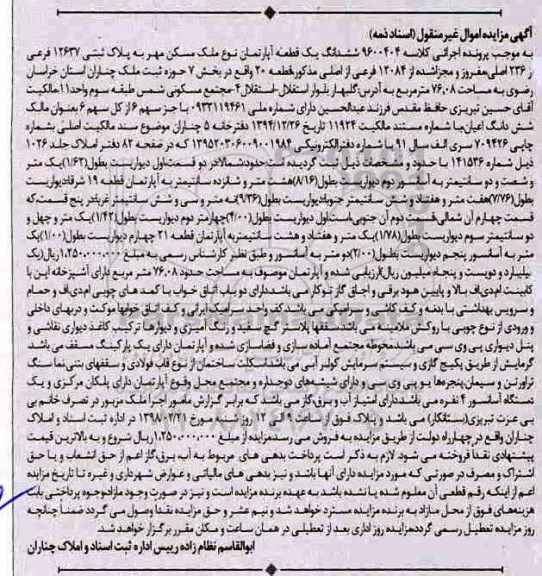 آگهی مزایده اموال غیرمنقول (اسناد ذمه)
به موجب پرونده اجرائی کلاسه ۹۶۰۰۴۰۴ ششدانگ یک قطعه آپارتمان نوع ملک مسکن مهر به پلاک ثبتی ۱۲۶۳۷ فرعی
از ۲۳۶ اصلی مفروز و مجزاشده از ۱۲۰۸۴ فرعی از اصلی مذکور قطعه ۲۰ واقع در بخش ۷ حوزه ثبت ملک چناران استان خراسان
رضوی به مساحت ۷۶,۰۸ مترمربع به آدرس: گلبهار بلوار استقلال-استقلال۴-مجتمع مسکونی شمس طبقه سوم واحد۱۱ مالکیت
آقای حسین تبریزی حافظ مقدس فرزند عبدالحسین دارای شماره ملی ۰۹۳۳۱۱۹۴۶۱ با جز سهم ۶ از کل سهم ۶ بعنوان مالک
شش دانگ اعیان با شماره مستند مالکیت ۱۱۹۲۴ تاریخ ۱۳۹۴/۱۲/۲۶ دفترخانه ۵ چناران موضوع سند مالکیت اصلی بشماره
چاپی ۷۰۹۴۲۶ سری الف سال ۹۱ با شماره دفترالکترونیکی ۱۳۹۵۲۰۳۰۶۰۰۹۰۰۱۹۸۴ که در صفحه ۸۲ دفتر املاک جلد ۱۰۲۶
ذیل شماره ۱۴۱۵۳۶ با حدود و مشخصات ذیل ثبت گردیده است حدود: شمالا: در دو قسمت اول دیواریست بطول(۱/۶۲)یک متر
و شصت و دو سانتیمتر به آسانسور دوم دیواریست بطول(۸/۱۶)هشت متر و شانزده سانتیمتر به آپارتمان قطعه ۱۹ شرقا: دیواریست
بطول(۷/۷۶)هفت متر و هفتاد و شش سانتیمتر جنوبا: دیواریست بطول(۹/۳۶)نه متر و سی و شش سانتیمتر غربا: در پنج قسمت، که
قسمت چهارم آن شمالی قسمت دوم آن جنوبی است اول دیواریست بطول(۴/۰۰)چهارمتر دوم دیواریست بطول(۱/۴۲)یک متر و چهل و
دو سانتیمتر سوم دیواریست بطول(۱/۷۸)یک متر و هفتاد و هشت سانتیمتر به آپارتمان قطعه ۲۱ چهارم دیواریست بطول(۱/۰۰)یک
متر به آسانسور پنجم دیواریست بطول(۲/۰۰)دو متر به آسانسور و طبق نظر کارشناس رسمی به مبلغ ۱,۲۵۰,۰۰۰,۰۰۰ ریال(یک
میلیارد و دویست و پنجاه میلیون ریال)ارزیابی شده و آپارتمان موصوف به مساحت حدود ۷۶,۰۸ متر مربع دارای آشپزخانه اپن با
کابینت ام‌دی‌اف بالا و پایین هود برقی و اجاق گاز توکار می باشد دارای دو باب اتاق خواب با کمد های چوبی ام‌دی‌اف و حمام
و سرویس بهداشتی با بدنه و کف کاشی و سرامیکی می باشد کف واحد سرامیک ایرانی و کف اتاق خوابها موکت و دربهای داخلی
و ورودی از نوع چوبی با روکش ملامینه می باشد سقفها پلاستر گچ سفید و رنگ آمیزی و دیوارها ترکیب کاغذ دیواری نقاشی و
پنل دیواری پی وی سی می باشد محوطه مجتمع آماده سازی و فضاسازی شده و آپارتمان دارای یک پارکینگ مسقف می باشد
گرمایش از طریق پکیج گازی و سیستم سرمایش کولر آبی می باشد اسکلت ساختمان از نوع قاب فولادی و سقفهای بتنی نما سنگ
تراورتن و سیمان پنجره‌ها یو پی وی سی و دارای شیشه‌های دوجداره و مجتمع محل وقوع آپارتمان دارای پلکان مرکزی و یک
دستگاه آسانسور ۴ نفره می باشد دارای امتیاز آب و برق گاز می باشد که برابر گزارش مامور اجرا ملک مزبور در تصرف خانم بی
بی عزت تبریزی(بستانکار) می باشد و پلاک فوق از ساعت ۹ الی ۱۲ روز شنبه مورخ ۱۳۹۸/۰۲/۲۱ در اداره ثبت اسناد و املاک
چناران واقع در چهارراه دولت از طریق مزایده به فروش می رسد مزایده از مبلغ ۱,۲۵۰,۰۰۰,۰۰۰ ریال شروع و به بالاترین قیمت
پیشنهادی نقدا فروخته می شود. لازم به ذکر است پرداخت بدهی های مربوط به آب برق گاز اعم از حق انشعاب و یا حق
اشتراک و مصرف در صورتی که مورد مزایده دارای آنها باشد و نیز بدهی های مالیاتی و عوارض شهرداری و غیره تا تاریخ مزایده
اعم از اینکه رقم قطعی آن معلوم شده یا نشده باشد به عهده برنده مزایده است و نیز در صورت وجود مازاد وجوه پرداختی بابت
هزینه‌های فوق از محل مازاد به برنده مزایده مسترد خواهد شد و نیم عشر و حق مزایده نقدا وصول می گردد ضمناً چنانچه
روز مزایده تعطیل رسمی گردد مزایده روز اداری بعد از تعطیلی در همان ساعت و مکان مقرر برگزار خواهد شد.
ابوالقاسم نظام زاده رییس اداره ثبت اسناد و املاک چناران